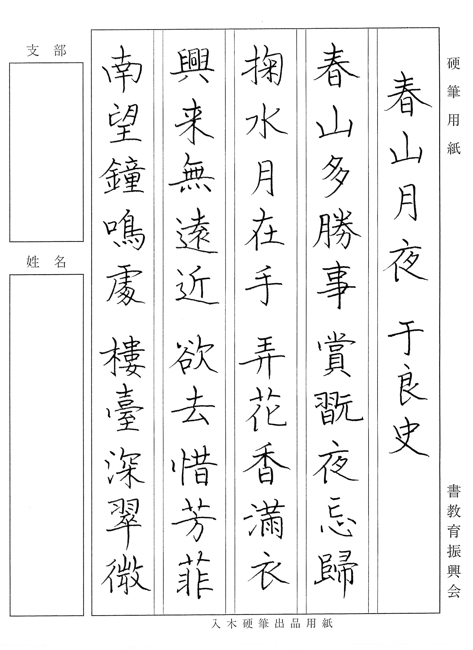 硬筆用紙
書教育振興会
春山月夜 于良史
春山多勝事 賞翫夜忘歸
掬水月在手 弄花香滿衣
興来無遠近 欲去惜芳菲
南望鐘鳴處 樓臺深翠微
支部
姓名
入木硬筆出品用紙